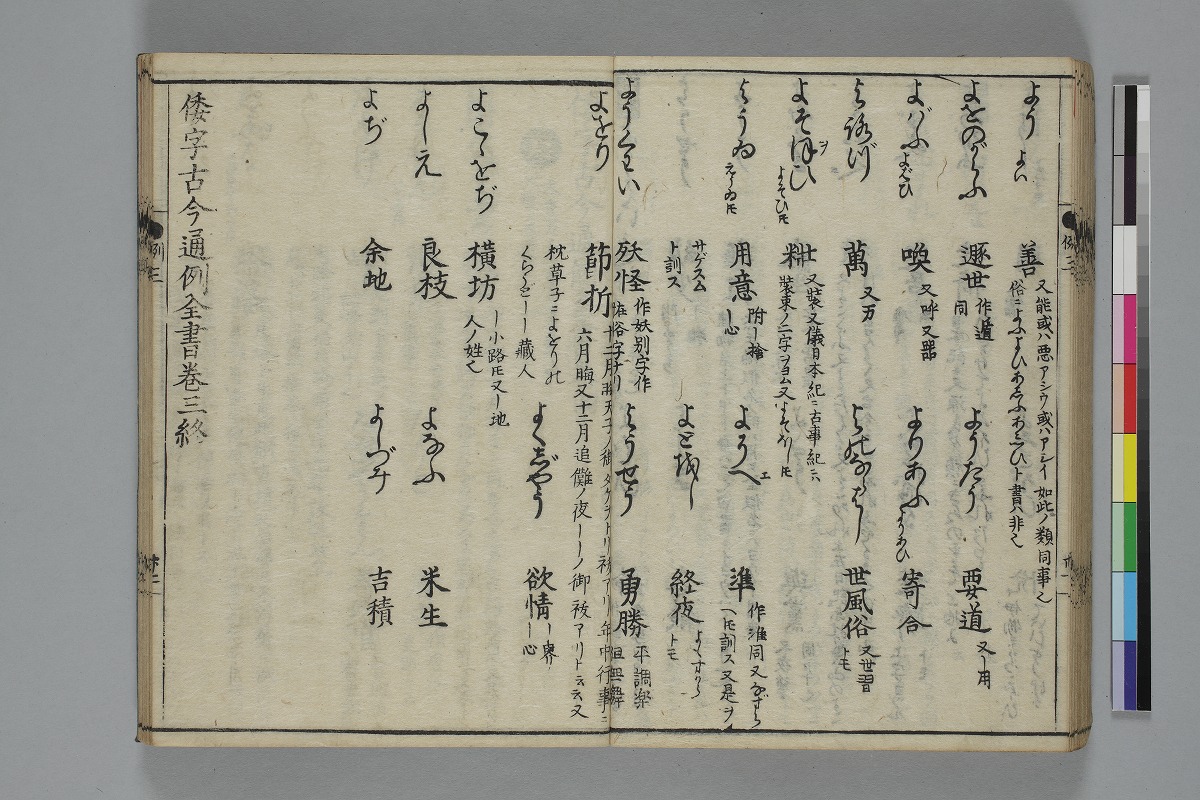 よう よい 善 又能或ハ悪アシウ或ハアシイ如此ノ類同事也
俗ニよふよひあしふあしひト書ハ非也
よをのがらふ 遯世 作遁同 ようだう 要道 又ー用
よばふ よばひ 喚 又呼又 よりあふ よりあひ 寄合
よろづ 萬 又万 よのならはし 世風俗 又世習トモ
よそほひ よそひ𪜈 粧 又裝又儀日本紀ニ古事紀ニハ
裝束ノ二字ヲヨム又よそおし𪜈
ようゐ 用意 附ー捨ー心 ようへ 準 作准同又なずらへ𪜈訓ス又是ヲ
サゲスムト訓ス よとぎし 終夜 よすがらトモ
ようくわい 妖怪 作妖別字作恠俗字ナリ ようせう 勇勝 平調楽但無舞
よをり 節折 十二月晦天子ノ御タケヲトリ祓アリ年中行事ニ
六月晦又十二月追儺ノ夜ーーノ御祓アリト云云又
枕草子ニよをりの
くらうどーー藏人 よくじやう 欲情 ー界ー心
よこをぢ 横坊 ー小路𪜈又ー地人ノ姓也
よしえ 良枝 よなふ 米生
よぢ 余地 よしづみ 吉積
倭字古今通例全書巻三終
例三